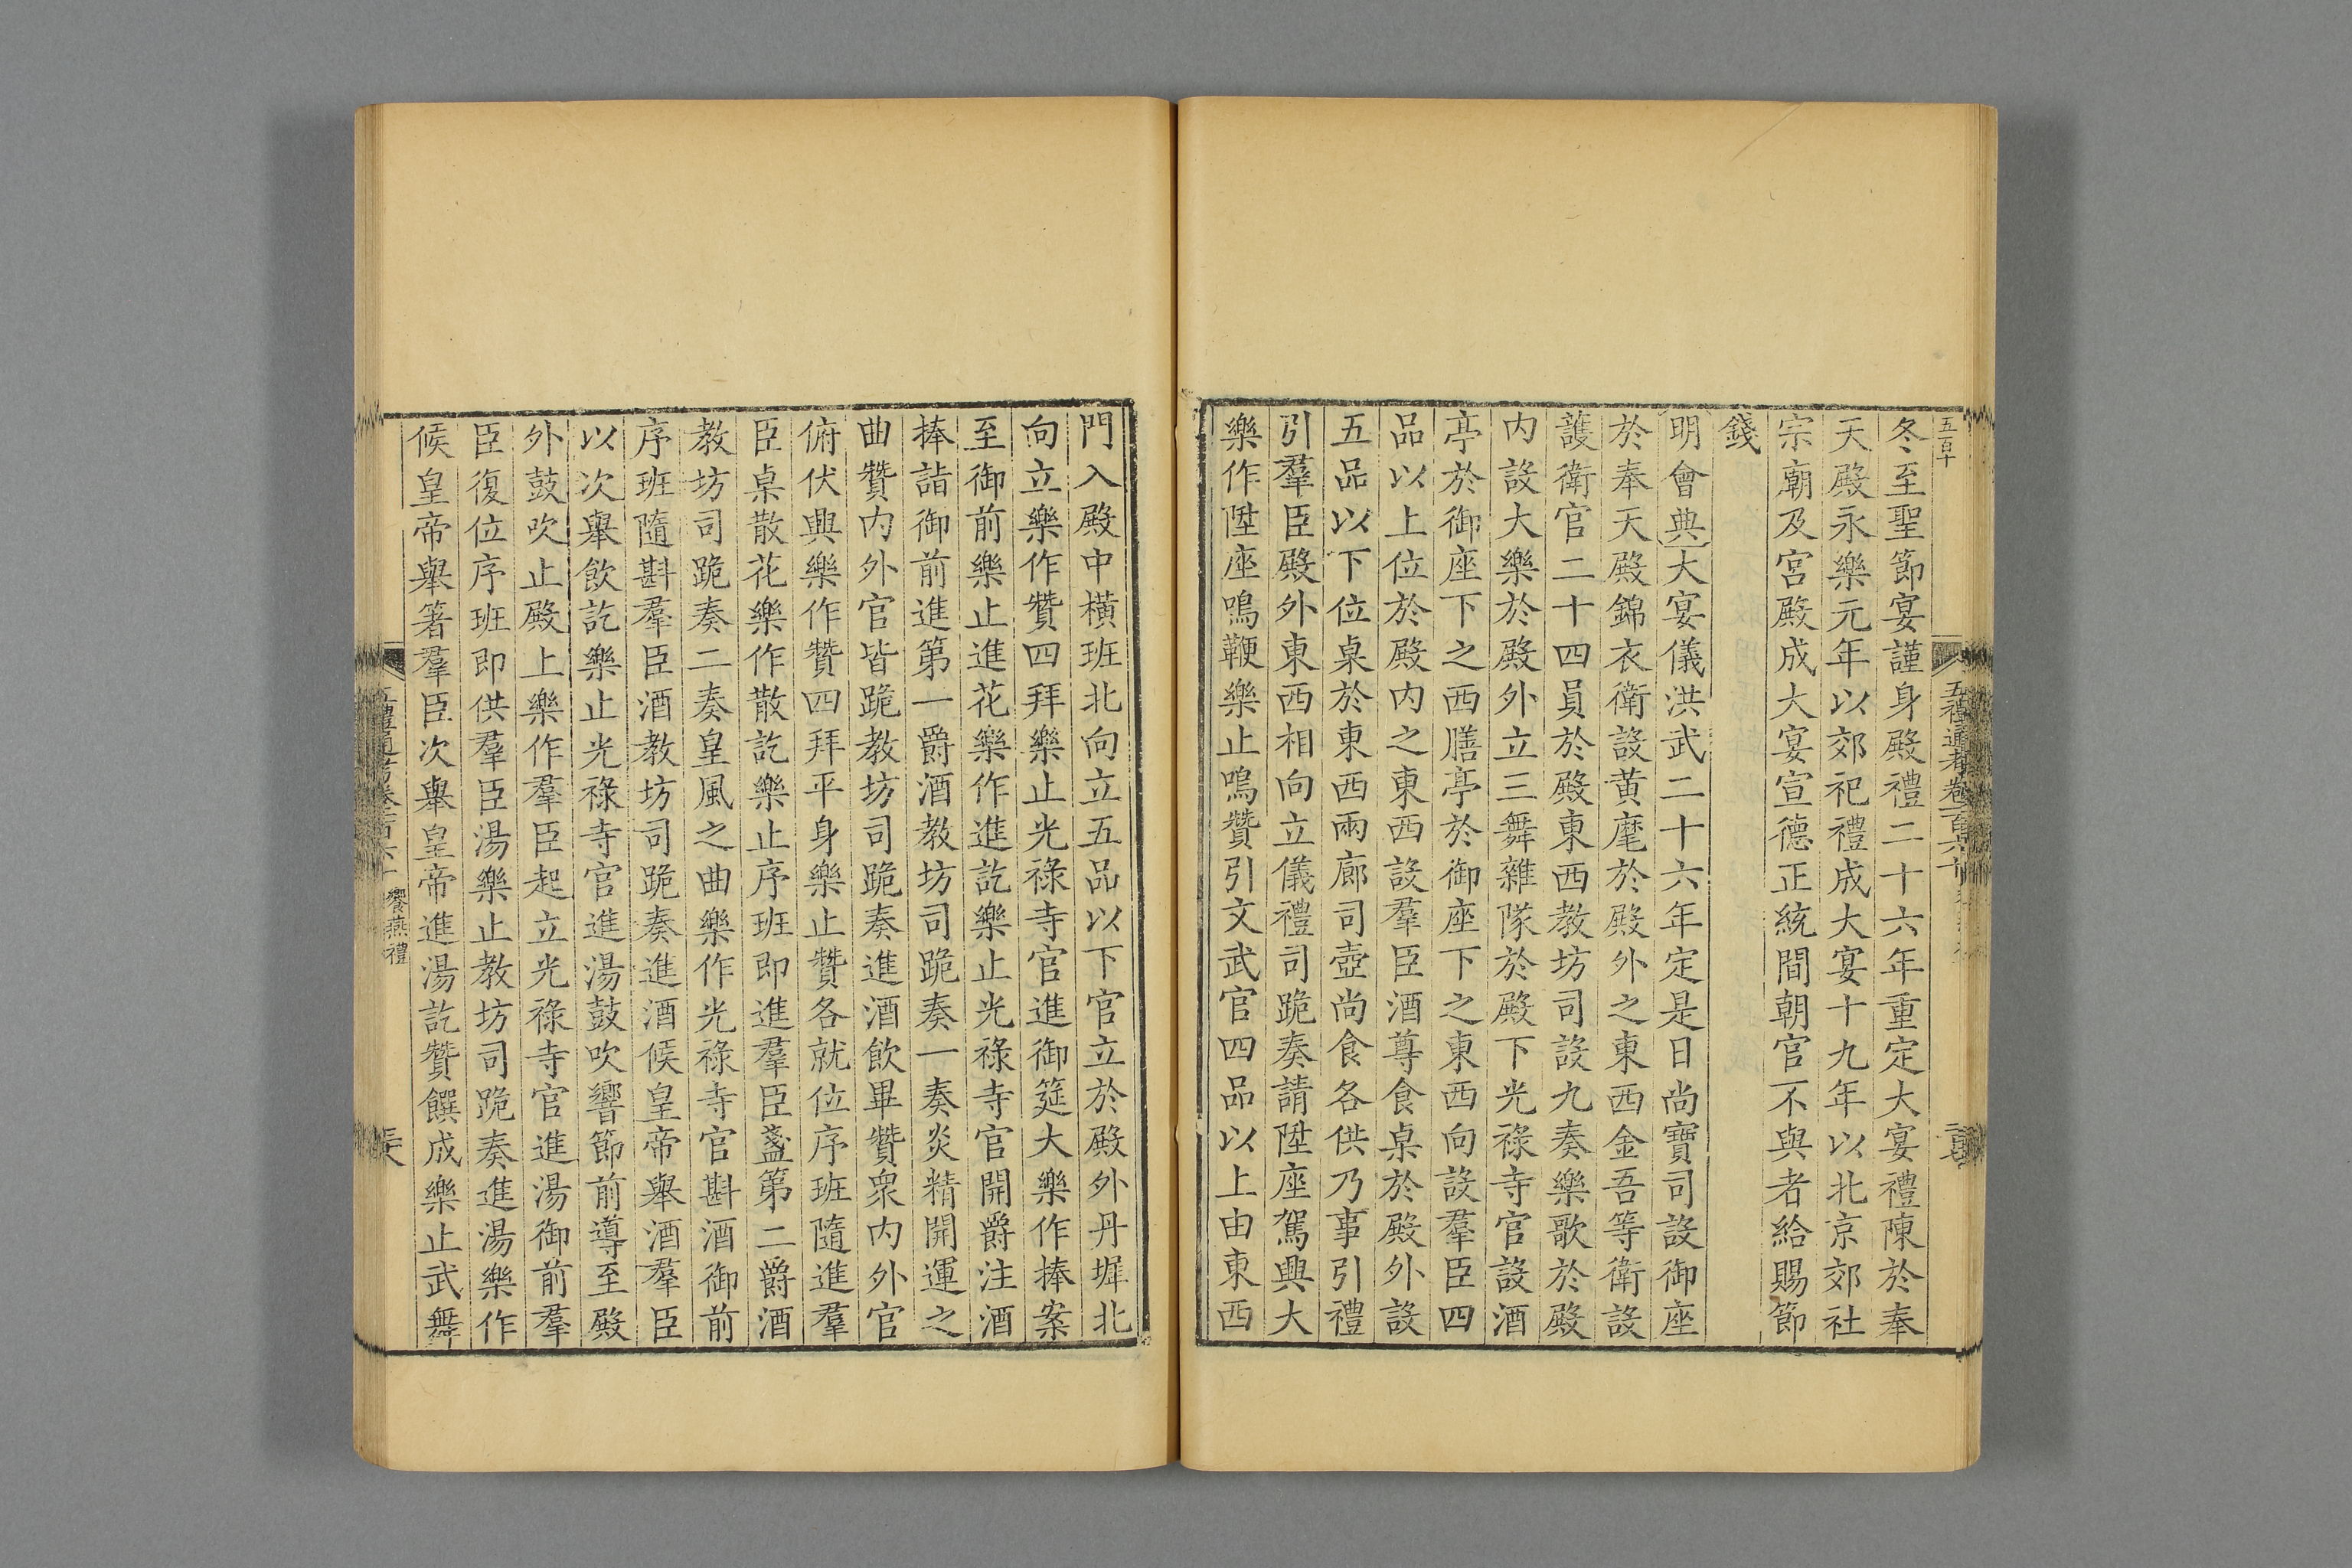 五百十
冬至聖節宴謹身殿禮二十六年重定大宴禮陳於奉
天殿永樂元年以郊祀禮成大宴十九年以北京郊社
宗廟及宮殿成大宴宣德正統間朝官不與者給賜節
錢
明會典大宴儀洪武二十六年定是日尚寶司設御座
於奉天殿錦衣衛設黃麾於殿外之東西金吾等衛設
護衛官二十四員於殿東西教坊司設九奏樂歌於殿
內設大樂於殿外立三舞雜隊於殿下光祿寺官設酒
亭於御座下之西膳亭於御座下之東西向設羣臣四
品以上位於殿內之東西設羣臣酒尊食桌於殿外設
五品以下位桌於東西兩廊司壺尚食各供乃事引禮
引羣臣殿外東西相向立儀禮司跪奏請陞座駕興大
樂作陞座鳴鞭樂止鳴贊引文武官四品以上由東西
門入殿中橫班北向立五品以下官立於殿外丹墀北
向立樂作贊四拜樂止光祿寺官進御筵大樂作捧案
至御前樂止進花樂作進訖樂止光祿寺官開爵注酒
捧詣御前進第一爵酒教坊司跪奏一奏炎精開運之
曲贊內外官皆跪教坊司跪奏進酒飲畢贊眾內外官
俯伏興樂作贊四拜平身樂止贊各就位序班隨進羣
臣桌散花樂作散訖樂止序班即進羣臣盞第二爵酒
教坊司跪奏二奏皇風之曲樂作光祿寺官斟酒御前
序班隨斟羣臣酒教坊司跪奏進酒候皇帝舉酒羣臣
以次舉飲訖樂止光祿寺官進湯鼓吹響節前導至殿
外鼓吹止殿上樂作羣臣起立光祿寺官進湯御前羣
臣復位序班即供羣臣湯樂止教坊司跪奏進湯樂作
候皇帝舉箸羣臣次舉皇帝進湯訖贊饌成樂止武舞
饗燕禮